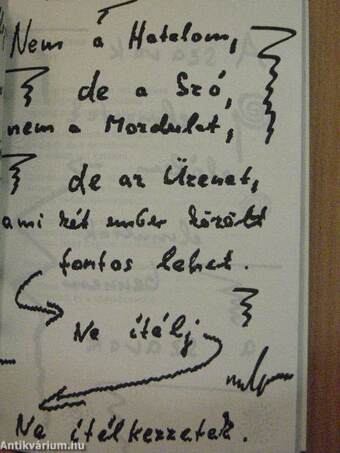 Nem a Hatalom,
de a Szó,
nem a Mozdulat,
de az Üzenet,
ami két ember között
fontos lehet.
Ne ítélj
Ne ítélkezzetek.
Antikvárium.hu